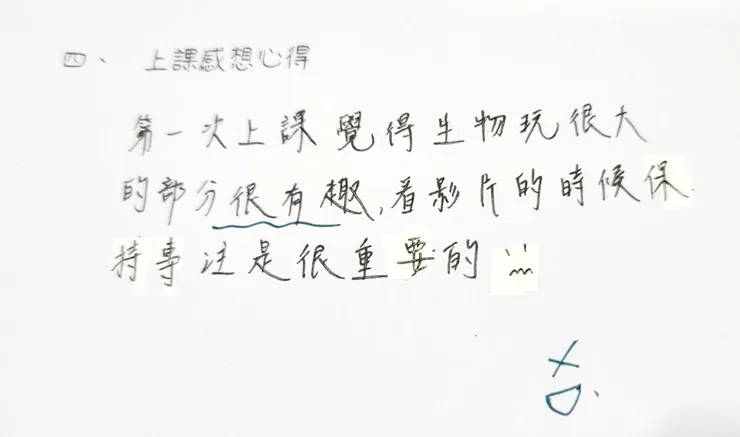 四、 上課感想心得
第一次上課覺得生物玩很大
的部分很有趣,看影片的時候保
持專注是很重要的